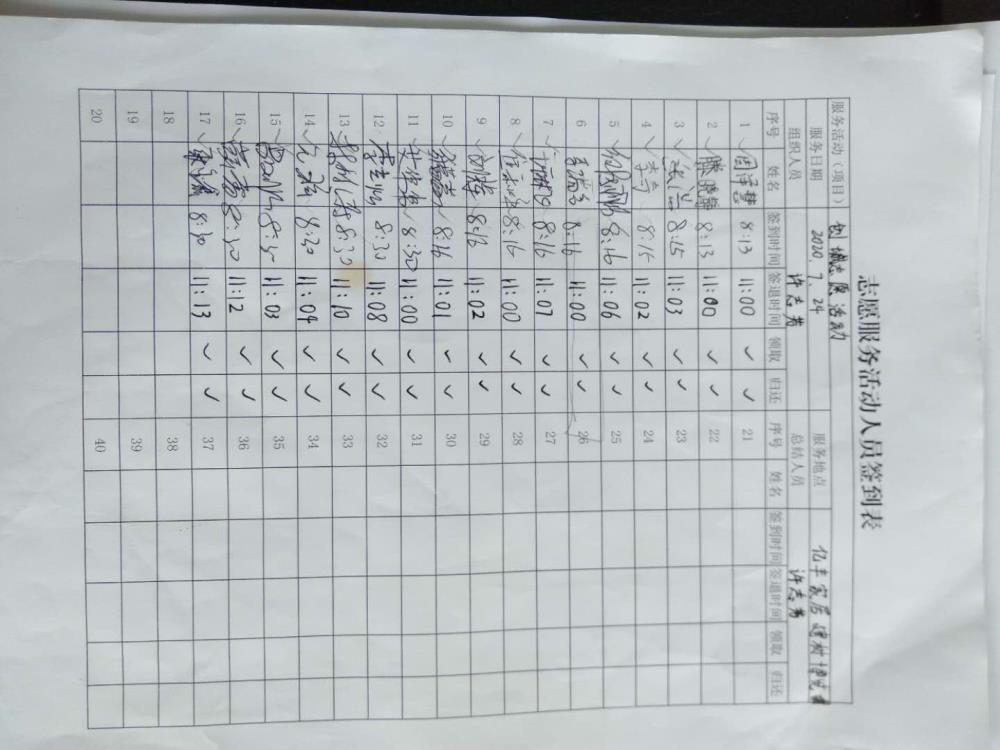 志愿服务活动人员签到表
服务活动(项目) 创城志愿活动
服务日期 2020.7.24 服务地点 亿丰家居建材博览
组织人员 许志 总结人员 许志
序号 姓名 签到时间 签退时间 领取 归还 序号 姓名 签到时间 签退时间 领取 归还
1 ✓ 周泽慧 8:13 11:00 ✓ ✓ 21
2 ✓ 滕晓 8:13 11:00 ✓ ✓ 22
3 ✓ 8:15 11:03 ✓ ✓ 23
4 ✓ 李 8:15 11:02 ✓ ✓ 24
5 ✓ 8:16 11:06 ✓ ✓ 25
6 ✓ 8:16 11:00 ✓ ✓ 26
7 ✓ 8:16 11:07 ✓ ✓ 27
8 ✓ 8:16 11:00 ✓ ✓ 28
9 ✓ 刘 8:16 11:02 ✓ ✓ 29
10 ✓ 8:16 11:01 ✓ ✓ 30
11 ✓ 8:30 11:00 ✓ ✓ 31
12 ✓ 李 8:30 11:08 ✓ ✓ 32
13 ✓ 8:30 11:10 ✓ ✓ 33
14 ✓ 8:30 11:04 ✓ ✓ 34
15 ✓ 8:30 11:03 ✓ ✓ 35
16 ✓ 8:30 11:12 ✓ ✓ 36
17 ✓ 8:30 11:13 ✓ ✓ 37
18 38
19 39
20 40